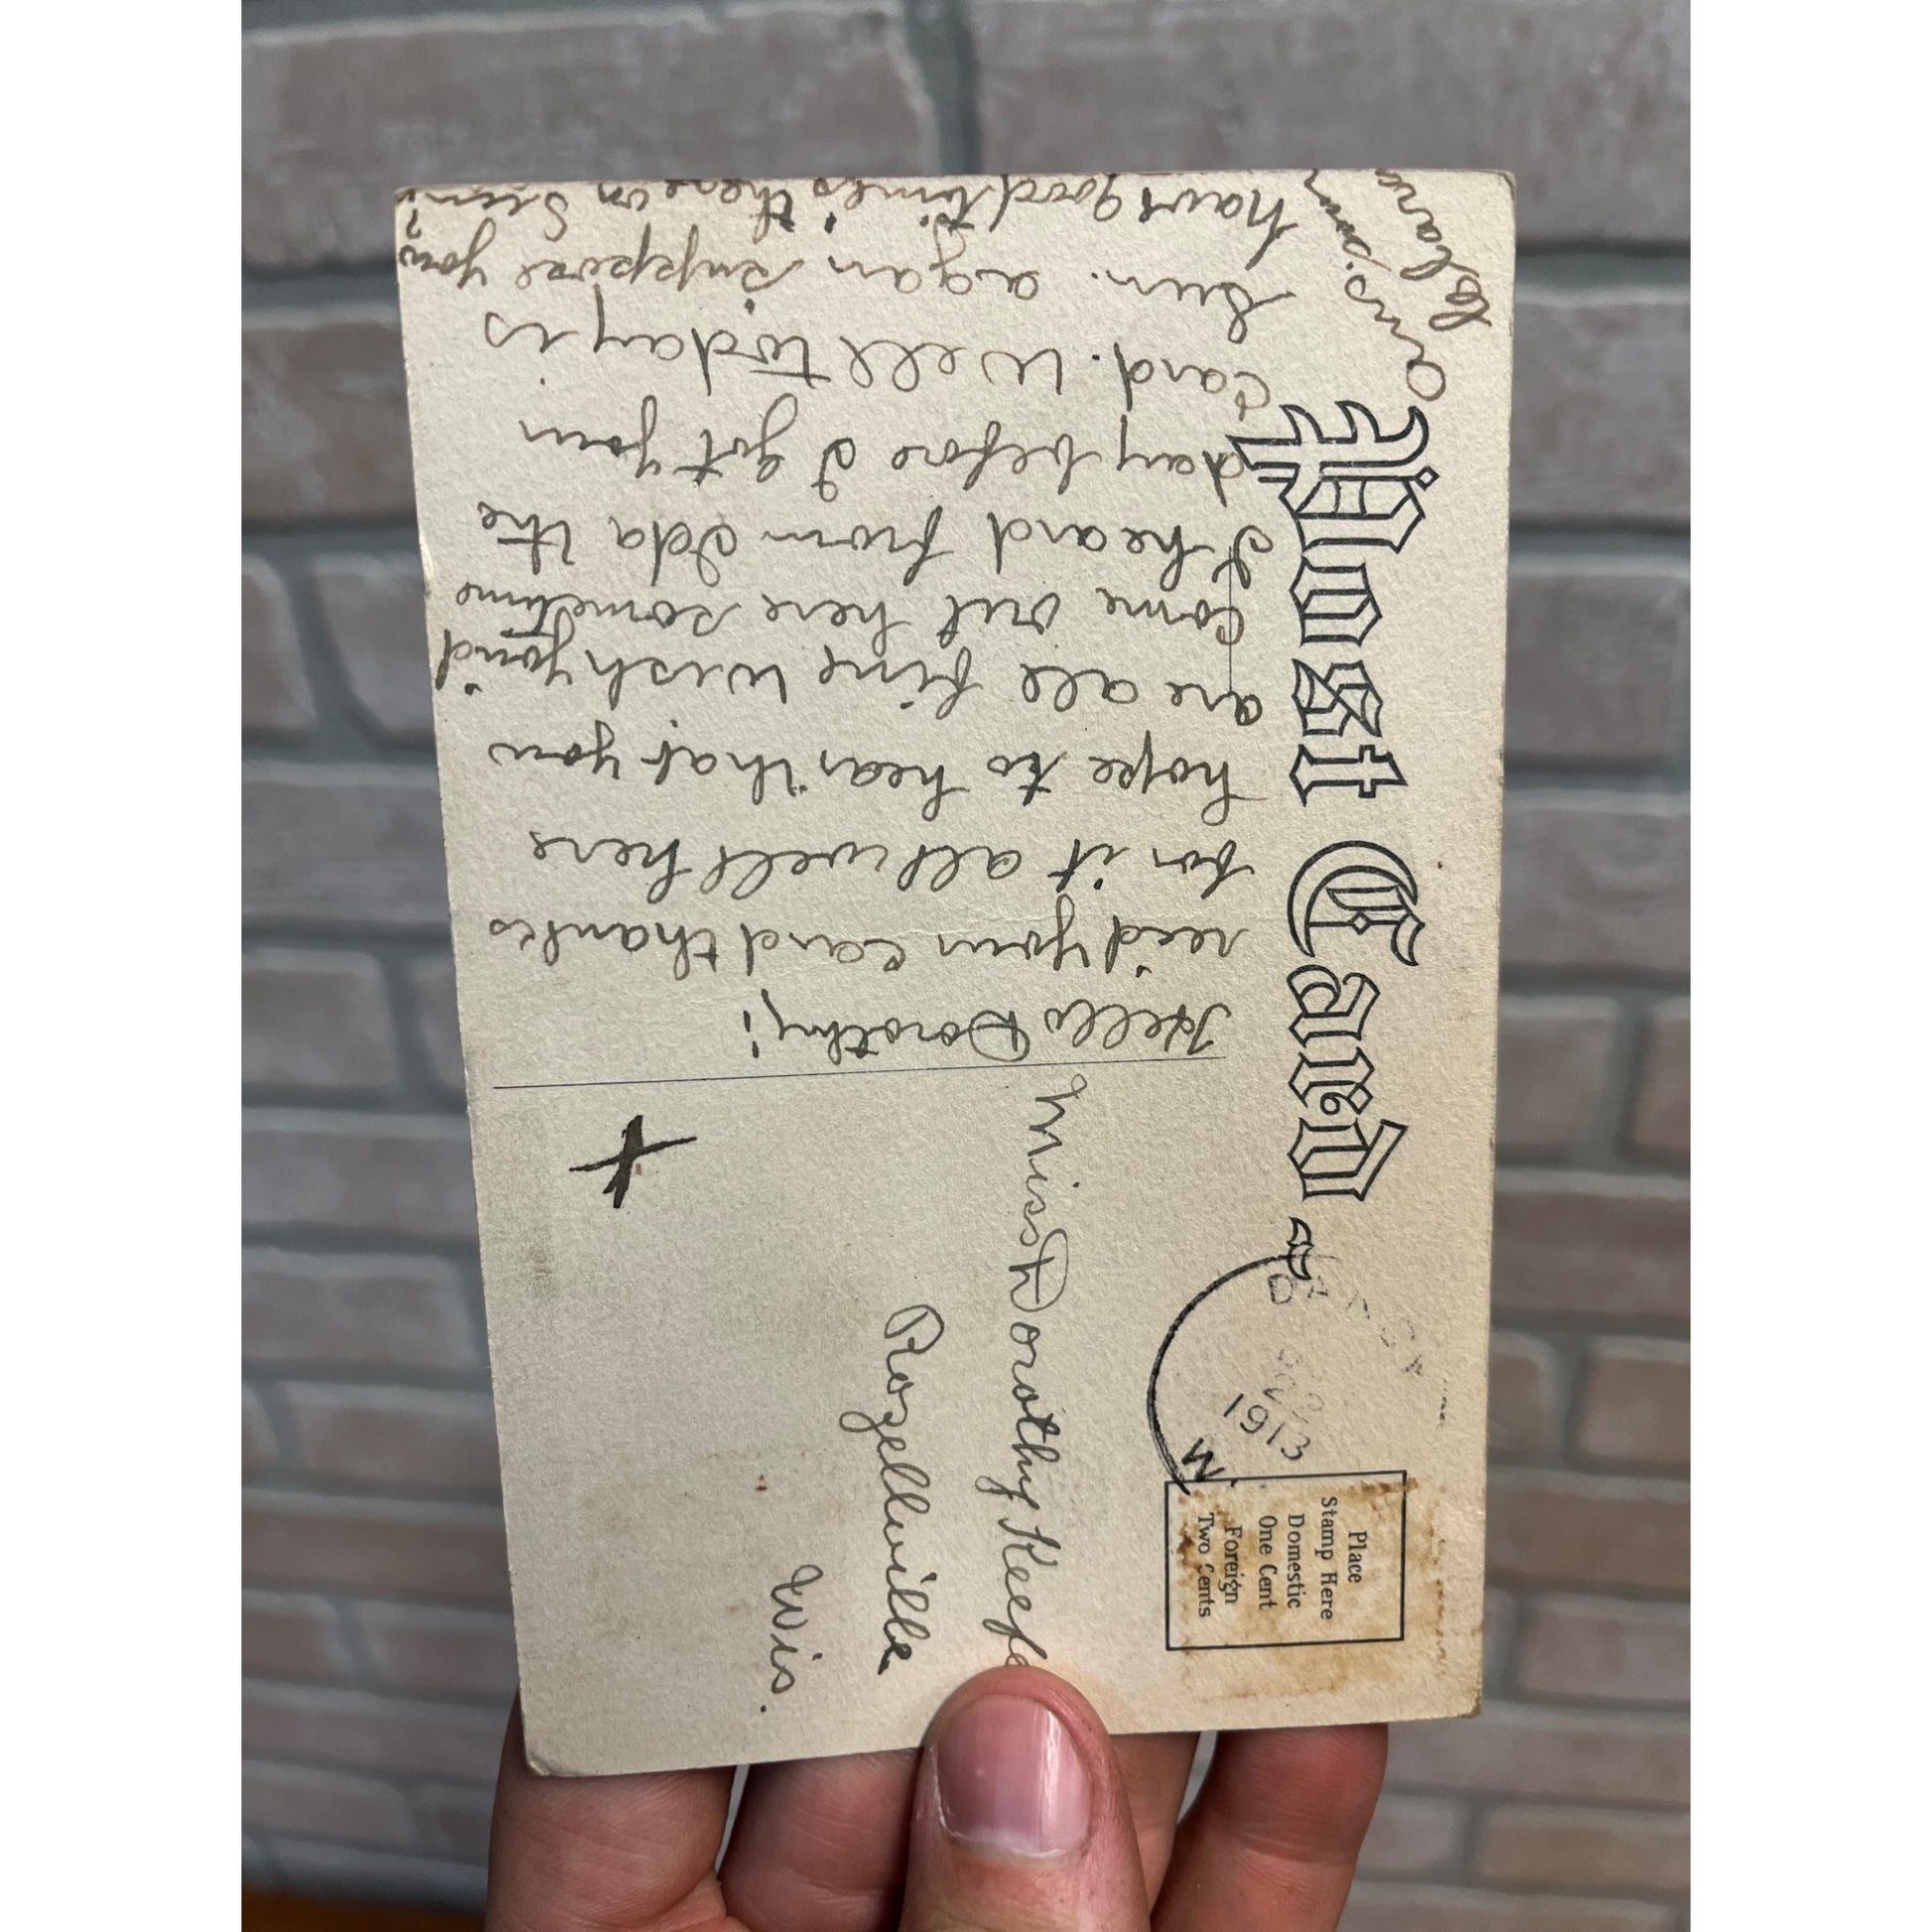 Post Card
Place
Stamp Here
Domestic
One Cent
Foreign
Two Cents
1913
Miss Dorothy Keefe
Rozellville
Wis.
Hello Dorothy;
rec'd your card thanks
for it all well here
hope to hear that you
are all fine wish you'd
come out here sometime
I heard from Ida the
day before I got your
card. Well today is
Sun. agan suppose you
have good times there on Sun?
Ans. soon